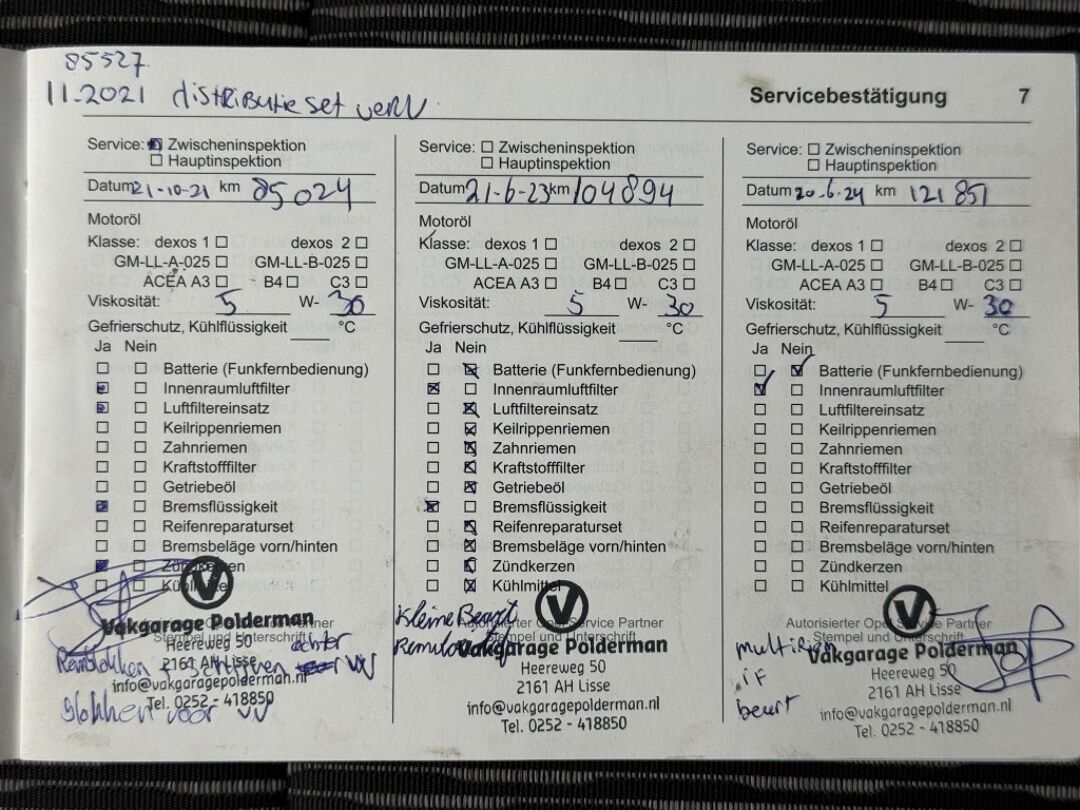 85527
11.2021 distributie set verv
Servicebestätigung 7
Service: Zwischeninspektion
Hauptinspektion
Datum 21-10-21 km 85024
Motoröl
Klasse: dexos 1 dexos 2
GM-LL-A-025 GM-LL-B-025
ACEA A3 B4 C3
Viskosität: 5 W- 30
Gefrierschutz, Kühlflüssigkeit °C
Ja Nein
Batterie (Funkfernbedienung)
Innenraumluftfilter
Luftfiltereinsatz
Keilrippenriemen
Zahnriemen
Kraftstofffilter
Getriebeöl
Bremsflüssigkeit
Reifenreparaturset
Bremsbeläge vorn/hinten
Zündkerzen
Kühlmittel
Vakgarage Polderman
Stempel und Unterschrift
Heereweg 50
achter
Remblokken
2161 AH Lisse
vv
info@vakgaragepolderman.nl
Tel. 0252 - 418850
blokken voor vv
Service: Zwischeninspektion
Hauptinspektion
Datum 21-6-23 km 104894
Motoröl
Klasse: dexos 1 dexos 2
GM-LL-A-025 GM-LL-B-025
ACEA A3 B4 C3
Viskosität: 5 W- 30
Gefrierschutz, Kühlflüssigkeit °C
Ja Nein
Batterie (Funkfernbedienung)
Innenraumluftfilter
Luftfiltereinsatz
Keilrippenriemen
Zahnriemen
Kraftstofffilter
Getriebeöl
Bremsflüssigkeit
Reifenreparaturset
Bremsbeläge vorn/hinten
Zündkerzen
Kühlmittel
Kleine Beurt
Autorisierter Opel Service Partner
Stempel und Unterschrift
Vakgarage Polderman
Heereweg 50
2161 AH Lisse
info@vakgaragepolderman.nl
Tel. 0252 - 418850
Service: Zwischeninspektion
Hauptinspektion
Datum 20-6-24 km 121851
Motoröl
Klasse: dexos 1 dexos 2
GM-LL-A-025 GM-LL-B-025
ACEA A3 B4 C3
Viskosität: 5 W- 30
Gefrierschutz, Kühlflüssigkeit °C
Ja Nein
Batterie (Funkfernbedienung)
Innenraumluftfilter
Luftfiltereinsatz
Keilrippenriemen
Zahnriemen
Kraftstofffilter
Getriebeöl
Bremsflüssigkeit
Reifenreparaturset
Bremsbeläge vorn/hinten
Zündkerzen
Kühlmittel
Autorisierter Opel Service Partner
Stempel und Unterschrift
multiriem
Vakgarage Polderman
Heereweg 50
2161 AH Lisse
beurt
info@vakgaragepolderman.nl
Tel. 0252 - 418850